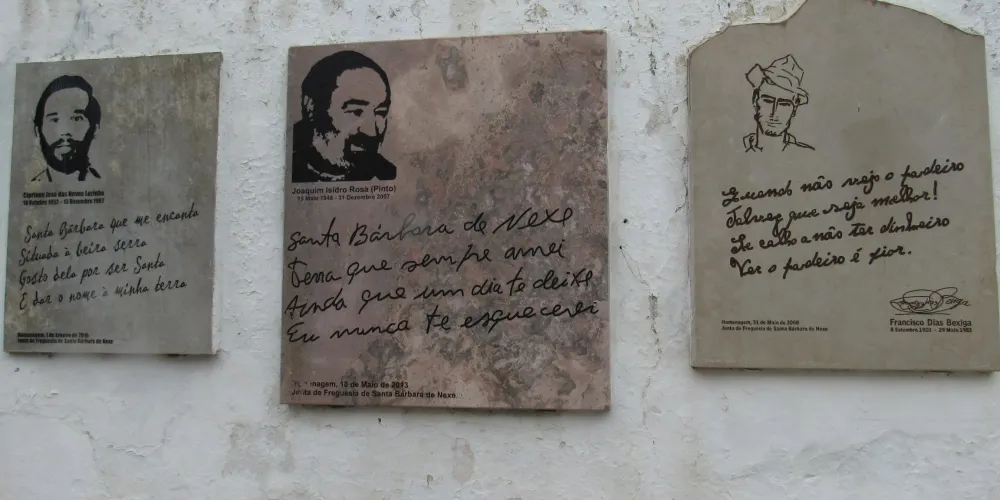 Cipriano José das Neves Lázinho
Santa Bárbara que me encanta
Situada à beira serra
Gosto dela por ser Santa
E dar o nome à minha terra
Junta de Freguesia de Santa Bárbara de Nexe
Joaquim Isidro Rosa (Pinto)
Maio 1944 - 31 Dezembro 2007
Santa Bárbara de Nexe
Terra que sempre amei
Ainda que um dia te deixe
Eu nunca te esquecerei
Homenagem, 18 de Maio de 2013
Junta de Freguesia de Santa Bárbara de Nexe
Quando não vejo o padeiro
Talvez que seja melhor!
Se calha a não ter dinheiro
Ver o padeiro é pior.
Homenagem, 31 de Maio de
Junta de Freguesia de Santa Bárbara de Nexe
Francisco Dias Bexiga